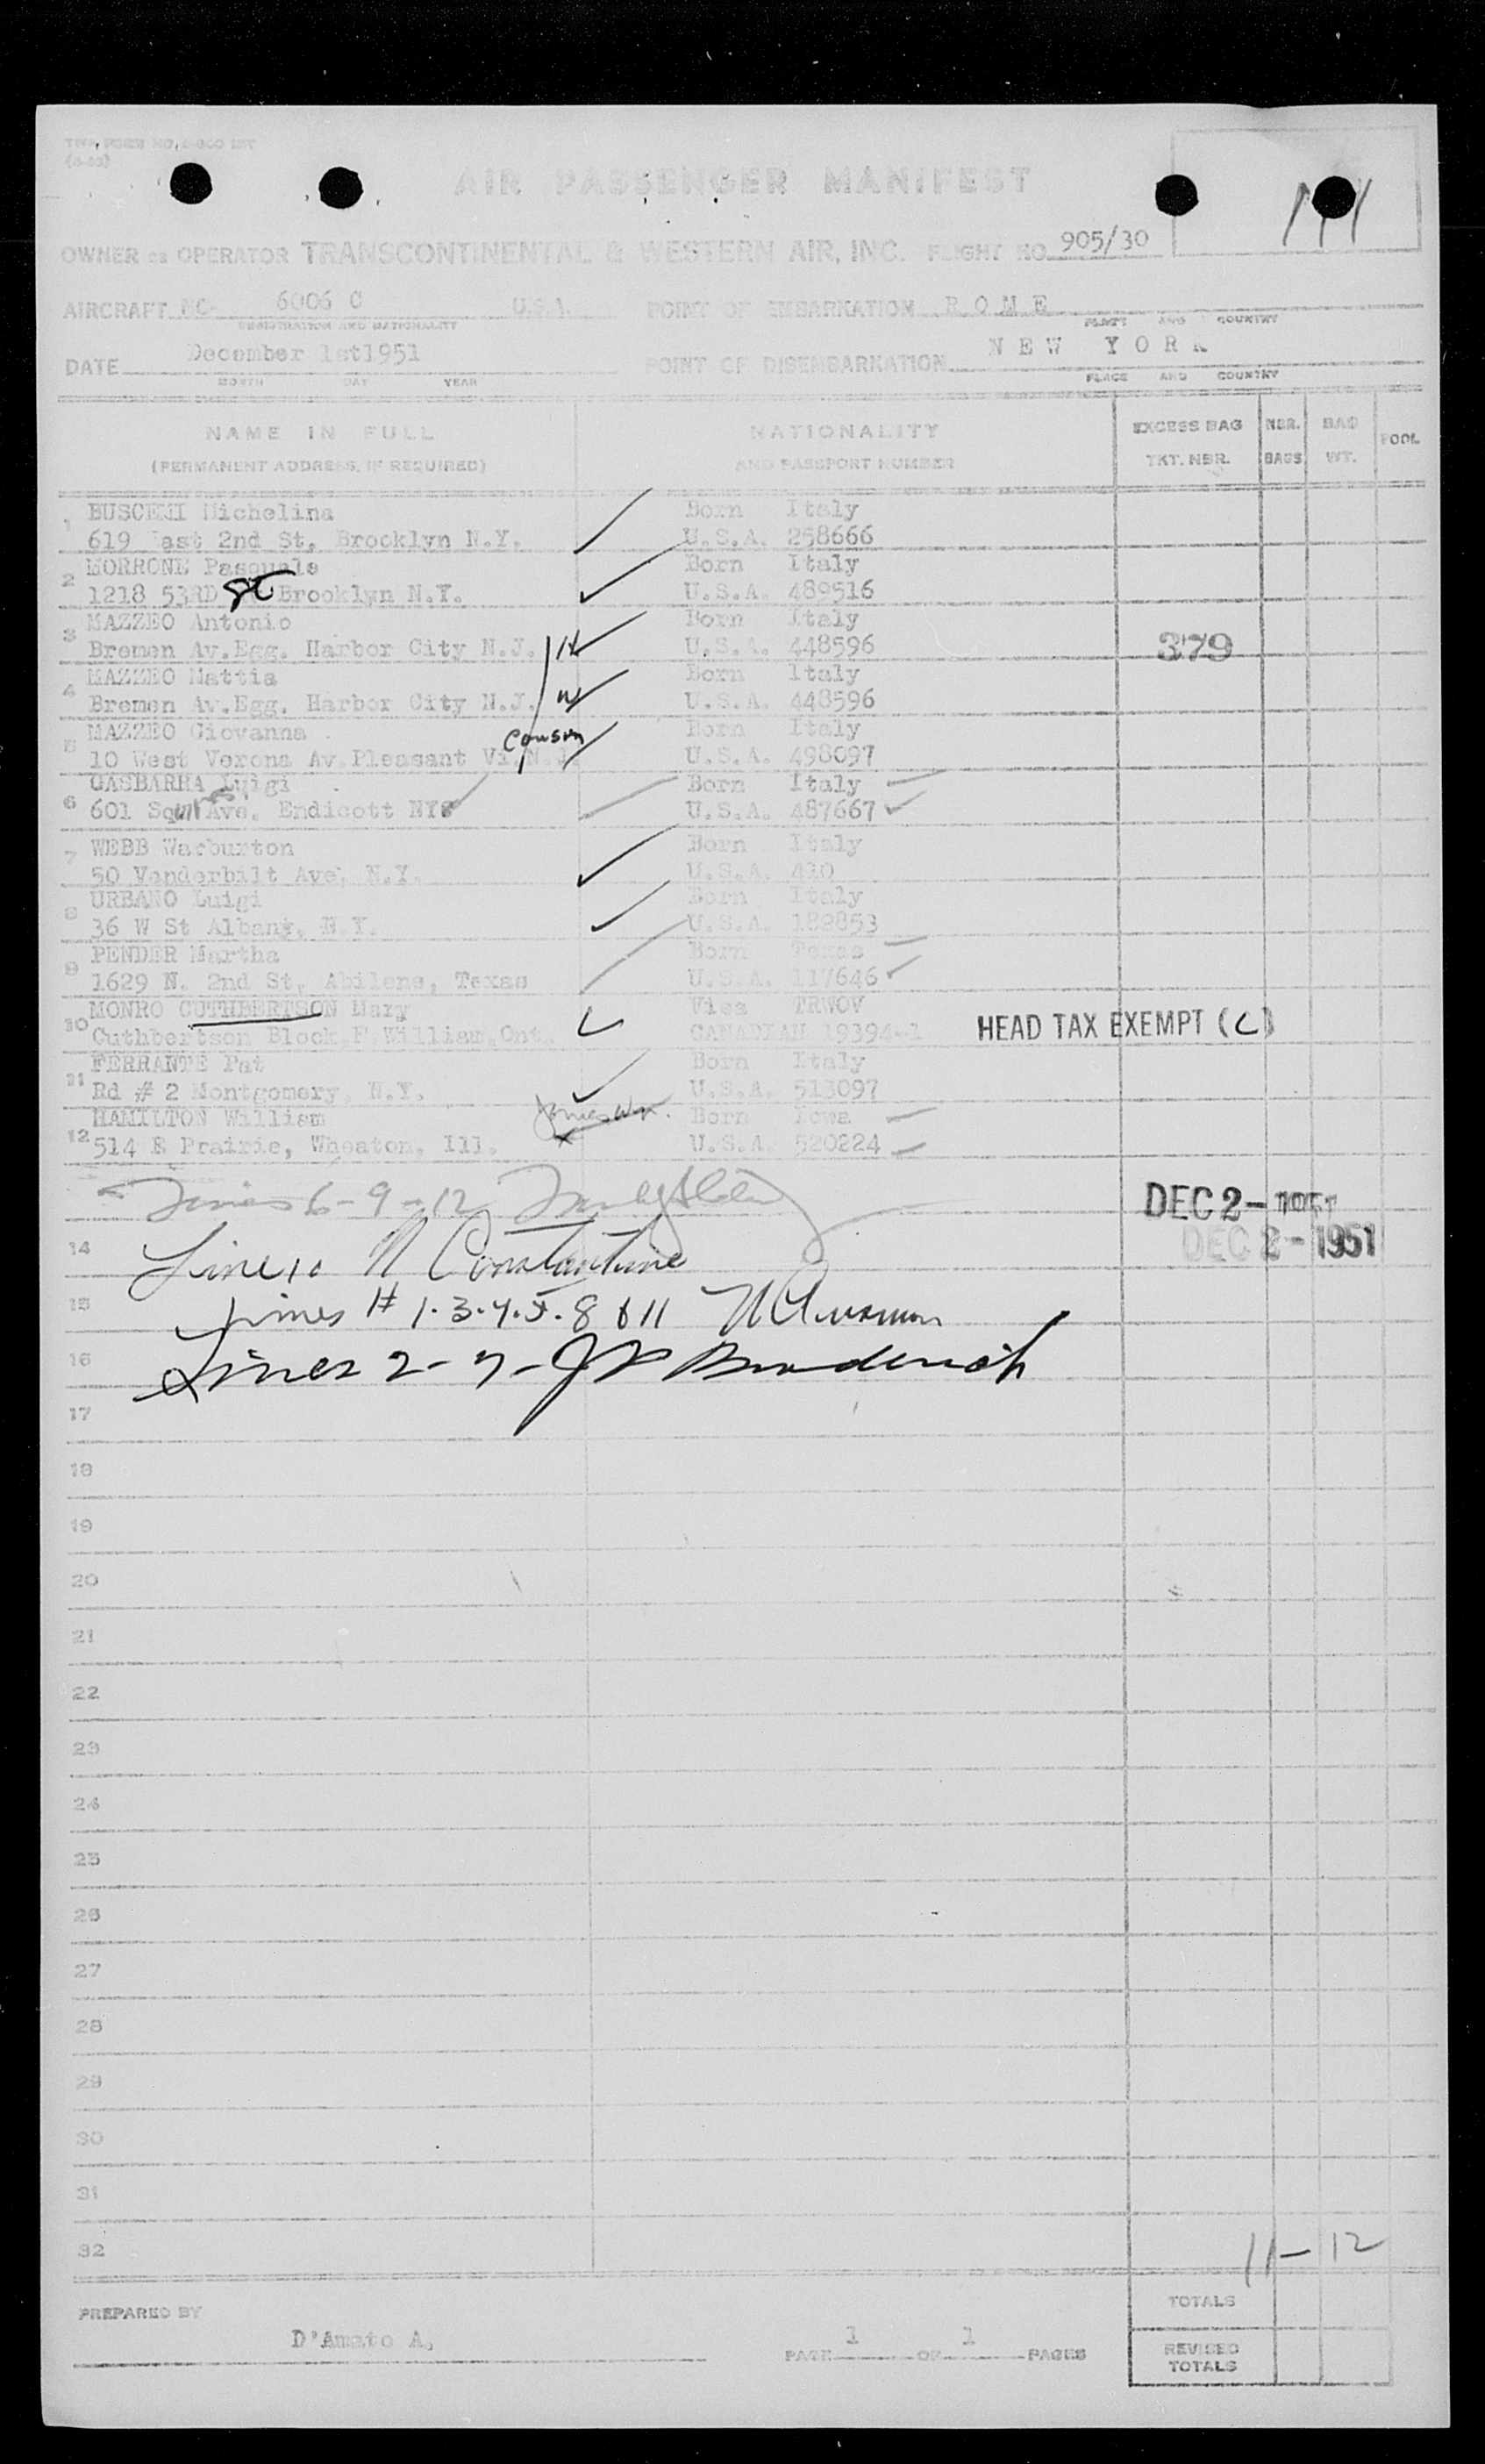 AIR PASSENGER MANIFEST
OWNER OR OPERATOR TRANSCONTINENTAL & WESTERN AIR, INC. FLIGHT NO. 905/30
AIRCRAFT NC- 6006 C U.S.A. POINT OF EMBARKATION R O M E
REGISTRATION AND NATIONALITY PLACE AND COUNTRY
DATE December 1st1951 POINT OF DISEMBARKATION N E W Y O R K
MONTH DAY YEAR PLACE AND COUNTRY
NAME IN FULL NATIONALITY EXCESS BAG NBR. BAG POOL
(PERMANENT ADDRESS, IF REQUIRED) AND PASSPORT NUMBER TKT. NBR. BAGS WT.
1 BUSCEMI Michelina Born Italy
619 East 2nd St, Brooklyn N.Y. U.S.A. 258666
2 MORRONE Pasquale Born Italy
1218 53RD St Brooklyn N.Y. U.S.A. 489516
3 MAZZEO Antonio Born Italy
Bremen Av.Egg. Harbor City N.J. H U.S.A. 448596 379
4 MAZZEO Mattia Born Italy
Bremen Av.Egg. Harbor City N.J. W U.S.A. 448596
5 MAZZEO Giovanna Cousin Born Italy
10 West Verona Av.Pleasant Vi.N.J. U.S.A. 498097
6 GASBARRA Luigi Born Italy
601 Ave. Endicott NY U.S.A. 487667
7 WEBB Warburton Born Italy
50 Vanderbilt Ave, N.Y. U.S.A. 410
8 URBANO Luigi Born Italy
36 W St Albany, N.Y. U.S.A. 182853
9 PENDER Martha Born Texas
1629 N. 2nd St, Abilene, Texas U.S.A. 117646
10 MONRO CUTHBERTSON Mary Visa TRWOV
Cuthbertson Block,F.William,Ont. CANADIAN 19394-1 HEAD TAX EXEMPT (C)
11 FERRANTE Pat Born Italy
Rd # 2 Montgomery, N.Y. U.S.A. 513097
12 HAMILTON William James Wm. Born Iowa
514 E Prairie, Wheaton, Ill. U.S.A. 520224
Lines 6-9-12 DEC 2 - 1951
14 Line 10 N Constantine DEC 2 - 1951
15 Lines # 1.3.4.5.8 & 11
16 Lines 2-7- J Broderick
17
18
19
20
21
22
23
24
25
26
27
28
29
30
31
32 11- 12
TOTALS
PREPARED BY D'Amato A.
PAGE 1 OF 1 PAGES REVISED TOTALS